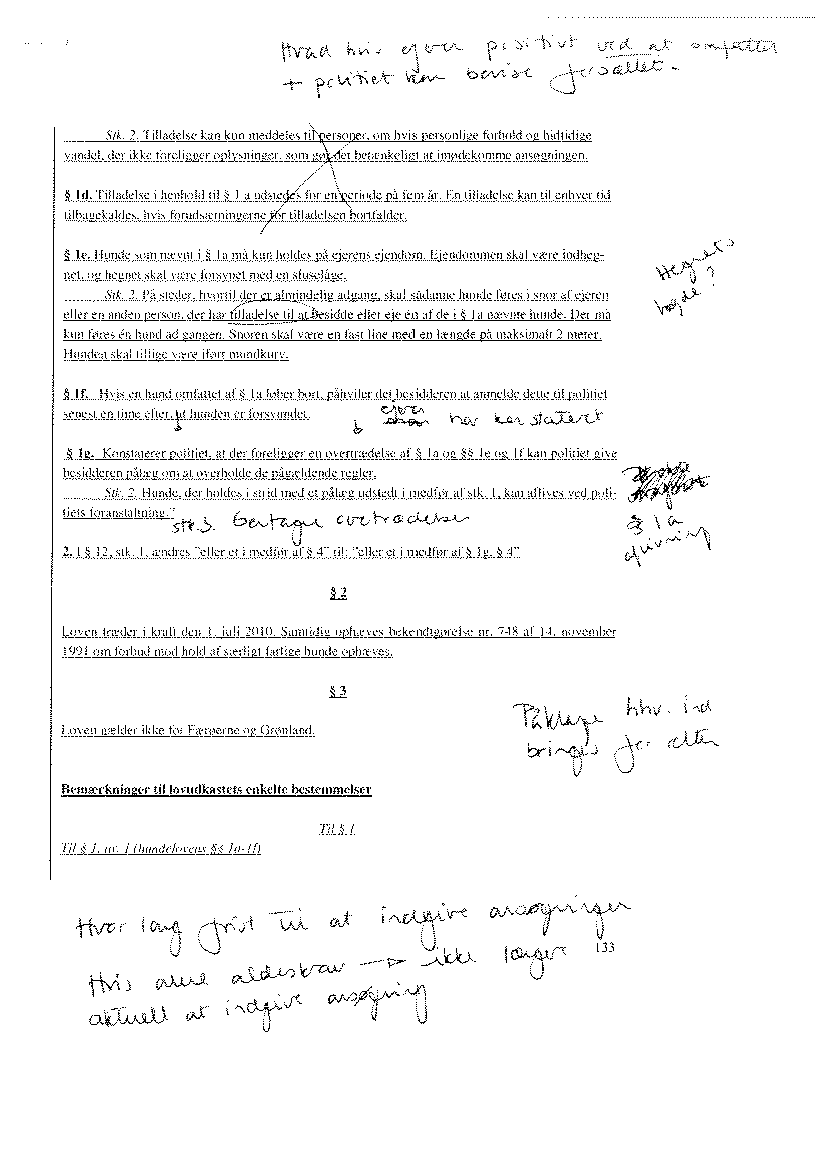 Hvad hvis ejver positivt ved at omfatter
+ politiet kan bevise forsættet.
Stk. 2. Tilladelse kan kun meddeles til personer, om hvis personlige forhold og hidtidige
vandel, der ikke foreligger oplysninger, som gør det betænkeligt at imødekomme ansøgningen.
§ 1d. Tilladelse i henhold til § 1 a udstedes for en periode på fem år. En tilladelse kan til enhver tid
tilbagekaldes, hvis forudsætningerne for tilladelsen bortfalder.
§ 1e. Hunde som nævnt i § 1a må kun holdes på ejerens ejendom. Ejendommen skal være indheg-
net, og hegnet skal være forsynet med en sluselåge.
Hegnets
højde?
Stk. 2. På steder, hvortil der er almindelig adgang, skal sådanne hunde føres i snor af ejeren
eller en anden person, der har tilladelse til at besidde eller eje én af de i § 1a nævnte hunde. Der må
kun føres én hund ad gangen. Snoren skal være en fast line med en længde på maksimalt 2 meter.
Hunden skal tillige være iført mundkurv.
§ 1f. Hvis en hund omfattet af § 1a løber bort, påhviler det besidderen at anmelde dette til politiet
senest en time efter, at hunden er forsvundet.
ejver har konstateret
§ 1g. Konstaterer politiet, at der foreligger en overtrædelse af § 1a og §§ 1e og 1f kan politiet give
besidderen pålæg om at overholde de pågældende regler.
Stk. 2. Hunde, der holdes i strid med et pålæg udstedt i medfør af stk. 1, kan aflives ved poli-
tiets foranstaltning."
stk 3. Gentagne overtrædelser
§ 1a
aflivning
2. I § 12, stk. 1, ændres "eller et i medfør af § 4" til: "eller et i medfør af § 1g, § 4"
§ 2
Loven træder i kraft den 1. juli 2010. Samtidig ophæves bekendtgørelse nr. 748 af 14. november
1991 om forbud mod hold af særligt farlige hunde ophæves.
§ 3
Loven gælder ikke for Færøerne og Grønland.
Påklage hhv. ind
bringes for
Bemærkninger til lovudkastets enkelte bestemmelser
Til § 1
Til § 1, nr. 1 (hundelovens §§ 1a-1f)
Hvor lang frist til at indgive ansøgninger
133
Hvis alene alderskrav → ikke længere
aktuelt at indgive ansøgning